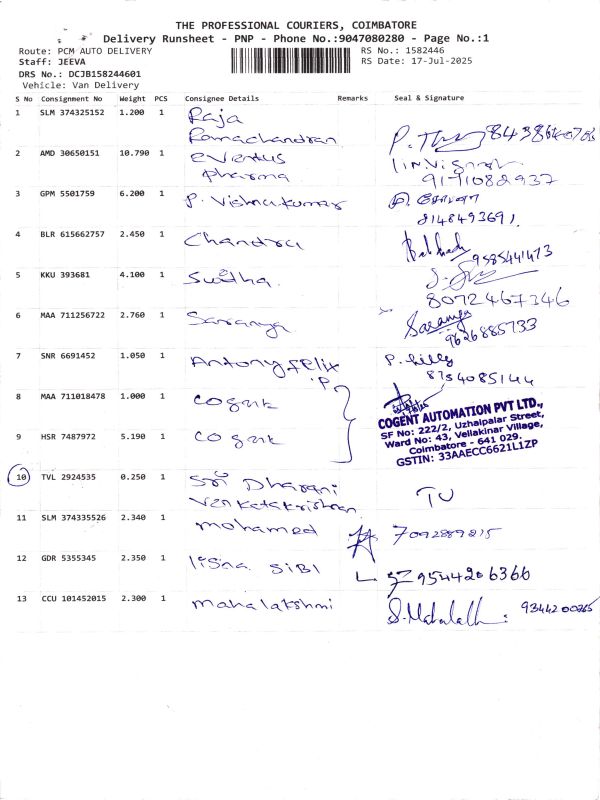 THE PROFESSIONAL COURIERS, COIMBATORE
Delivery Runsheet - PNP - Phone No.:9047080280 - Page No.:1
Route: PCM AUTO DELIVERY RS No.: 1582446
Staff: JEEVA RS Date: 17-Jul-2025
DRS No.: DCJB158244601
Vehicle: Van Delivery
S No Consignment No Weight PCS Consignee Details Remarks Seal & Signature
1 SLM 374325152 1.200 1 Raja
Ramachandran
2 AMD 30650151 10.790 1 eventus
pharma 9171082937
3 GPM 5501759 6.200 1 P. Vishnukumar
8148493691
4 BLR 615662757 2.450 1 Chandra 9585441473
5 KKU 393681 4.100 1 Sudha
8072467346
6 MAA 711256722 2.760 1 Saranya Saranya
9626885733
7 SNR 6691452 1.050 1 Antony felix P. Lilly
P 8754085144
8 MAA 711018478 1.000 1 cognt
COGENT AUTOMATION PVT LTD.,
SF No: 222/2, Uzhaipalar Street,
9 HSR 7487972 5.190 1 cognt Ward No: 43, Vellakinar Village,
Coimbatore - 641 029.
GSTIN: 33AAECC6621L1ZP
10 TVL 2924535 0.250 1 Sri Dharani
Venkatakrishnan TU
11 SLM 374335526 2.340 1 mohamed 7092889215
12 GDR 5355345 2.350 1 lisna SIBI 9544206366
13 CCU 101452015 2.300 1 mahalakshmi S. Mahalakh: 9344200265